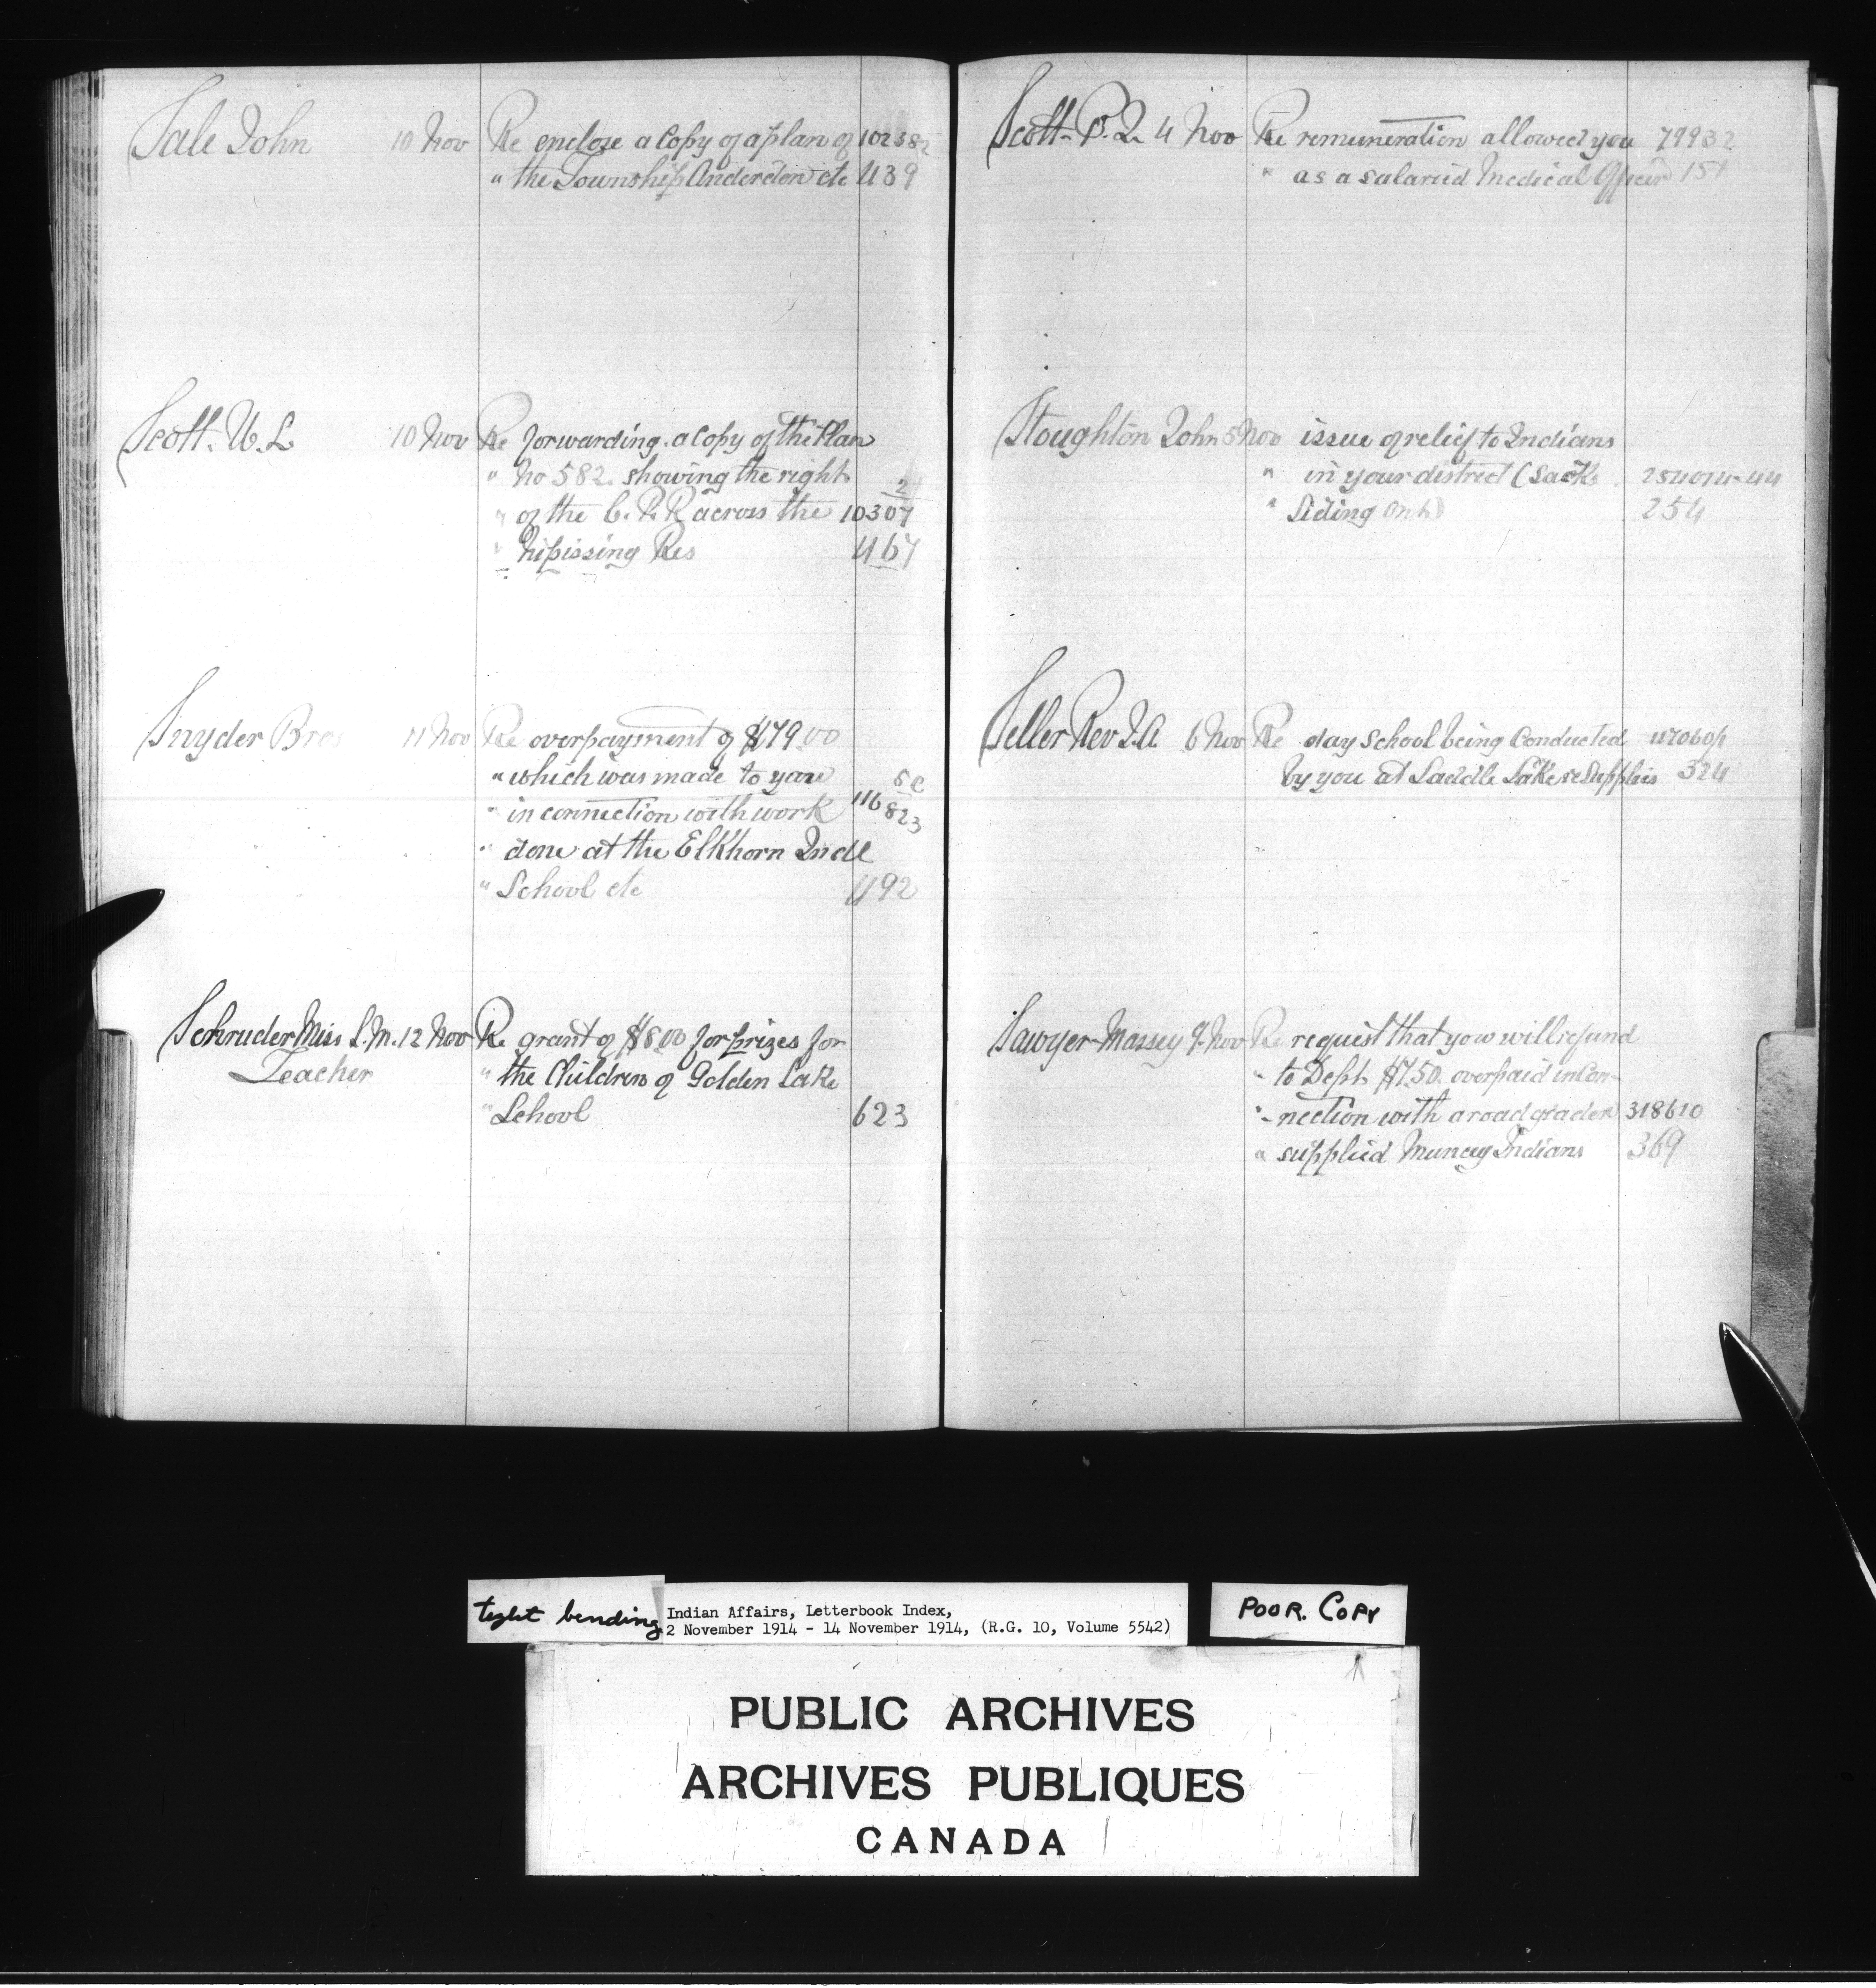 Sale John 10 Nov Re enclose a Copy of a plan of 102382
" the Township Anderdon etc 439
Scott. W. L 10 Nov Re forwarding a Copy of the Plan
" No 582. showing the right 2
" of the C. P. R across the 10307
" Nipissing Res 467
Snyder Bros 11 Nov Re overpayment of $479.00
" which was made to you
" in connection with work 116 823
" done at the Elkhorn Indl
" School etc 492
Schruder Miss L. M. 12 Nov Re grant of $8.00 for prizes for
Teacher " the Children of Golden Lake
" School 623
Scott. P. 4 Nov Re remuneration allowed you 79932
" as a salaried Medical Officer 151
Stoughton John 5 Nov issue of relief to Indians
" in your district (Sacks 254014-44
" Siding Ont) 254
Seller Rev J. A. 6 Nov Re day School being Conducted
by you at Saddle Lake re Supplies 324
Sawyer-Massey 7 Nov Re request that you will refund
" to Dept. $7.50. overpaid in Con-
" -nection with a road grader 318610
" supplied Muncey Indians 369
tight bending
Indian Affairs, Letterbook Index,
2 November 1914 - 14 November 1914, (R.G. 10, Volume 5542)
POOR. COPY
PUBLIC ARCHIVES
ARCHIVES PUBLIQUES
CANADA